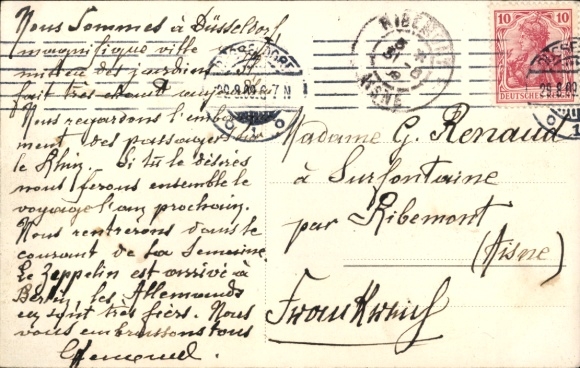 Nous sommes à Düsseldorf,
magnifique ville
milieu des jardins. Il
fait très chaud
Nous regardons l'embarque
ment des passagers
le Rhin. Si tu le désires
nous ferons ensemble le
voyage l'an prochain.
Nous rentrerons dans le
courant de la Semaine.
Le Zeppelin est arrivé à
Berlin, les Allemands
en sont très fiers. Nous
vous embrassons tous
DÜSSELDORF
29.8.09.6-7N
1
RIBEMONT
AISNE
10 10
DEUTSCHES
29.8.09
1
Madame G. Renaud
à Surfontaine
par Ribemont
(Aisne)
Frankreich